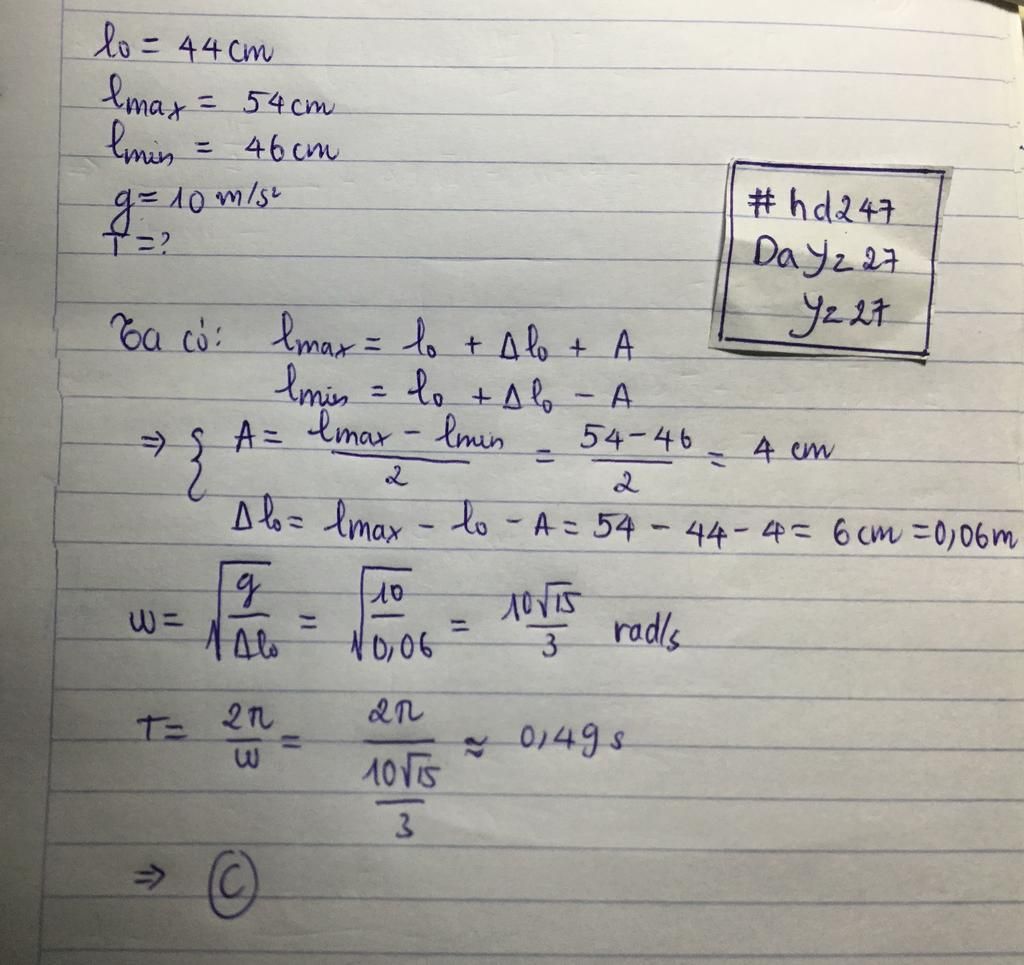 l₀ = 44cm
lmax = 54cm
lmin = 46cm
g = 10 m/s²
T = ?
#hd247
Dayz27
yz27
Ta có: lmax = l₀ + Δl₀ + A
lmin = l₀ + Δl₀ - A
⇒ { A = (lmax - lmin)/2 = (54-46)/2 = 4 cm
Δl₀ = lmax - l₀ - A = 54 - 44 - 4 = 6cm = 0,06m
ω = √(g/Δl₀) = √(10/0,06) = 10√15/3 rad/s
T = 2π/ω = 2π/(10√15/3) ≈ 0,49 s
⇒ C